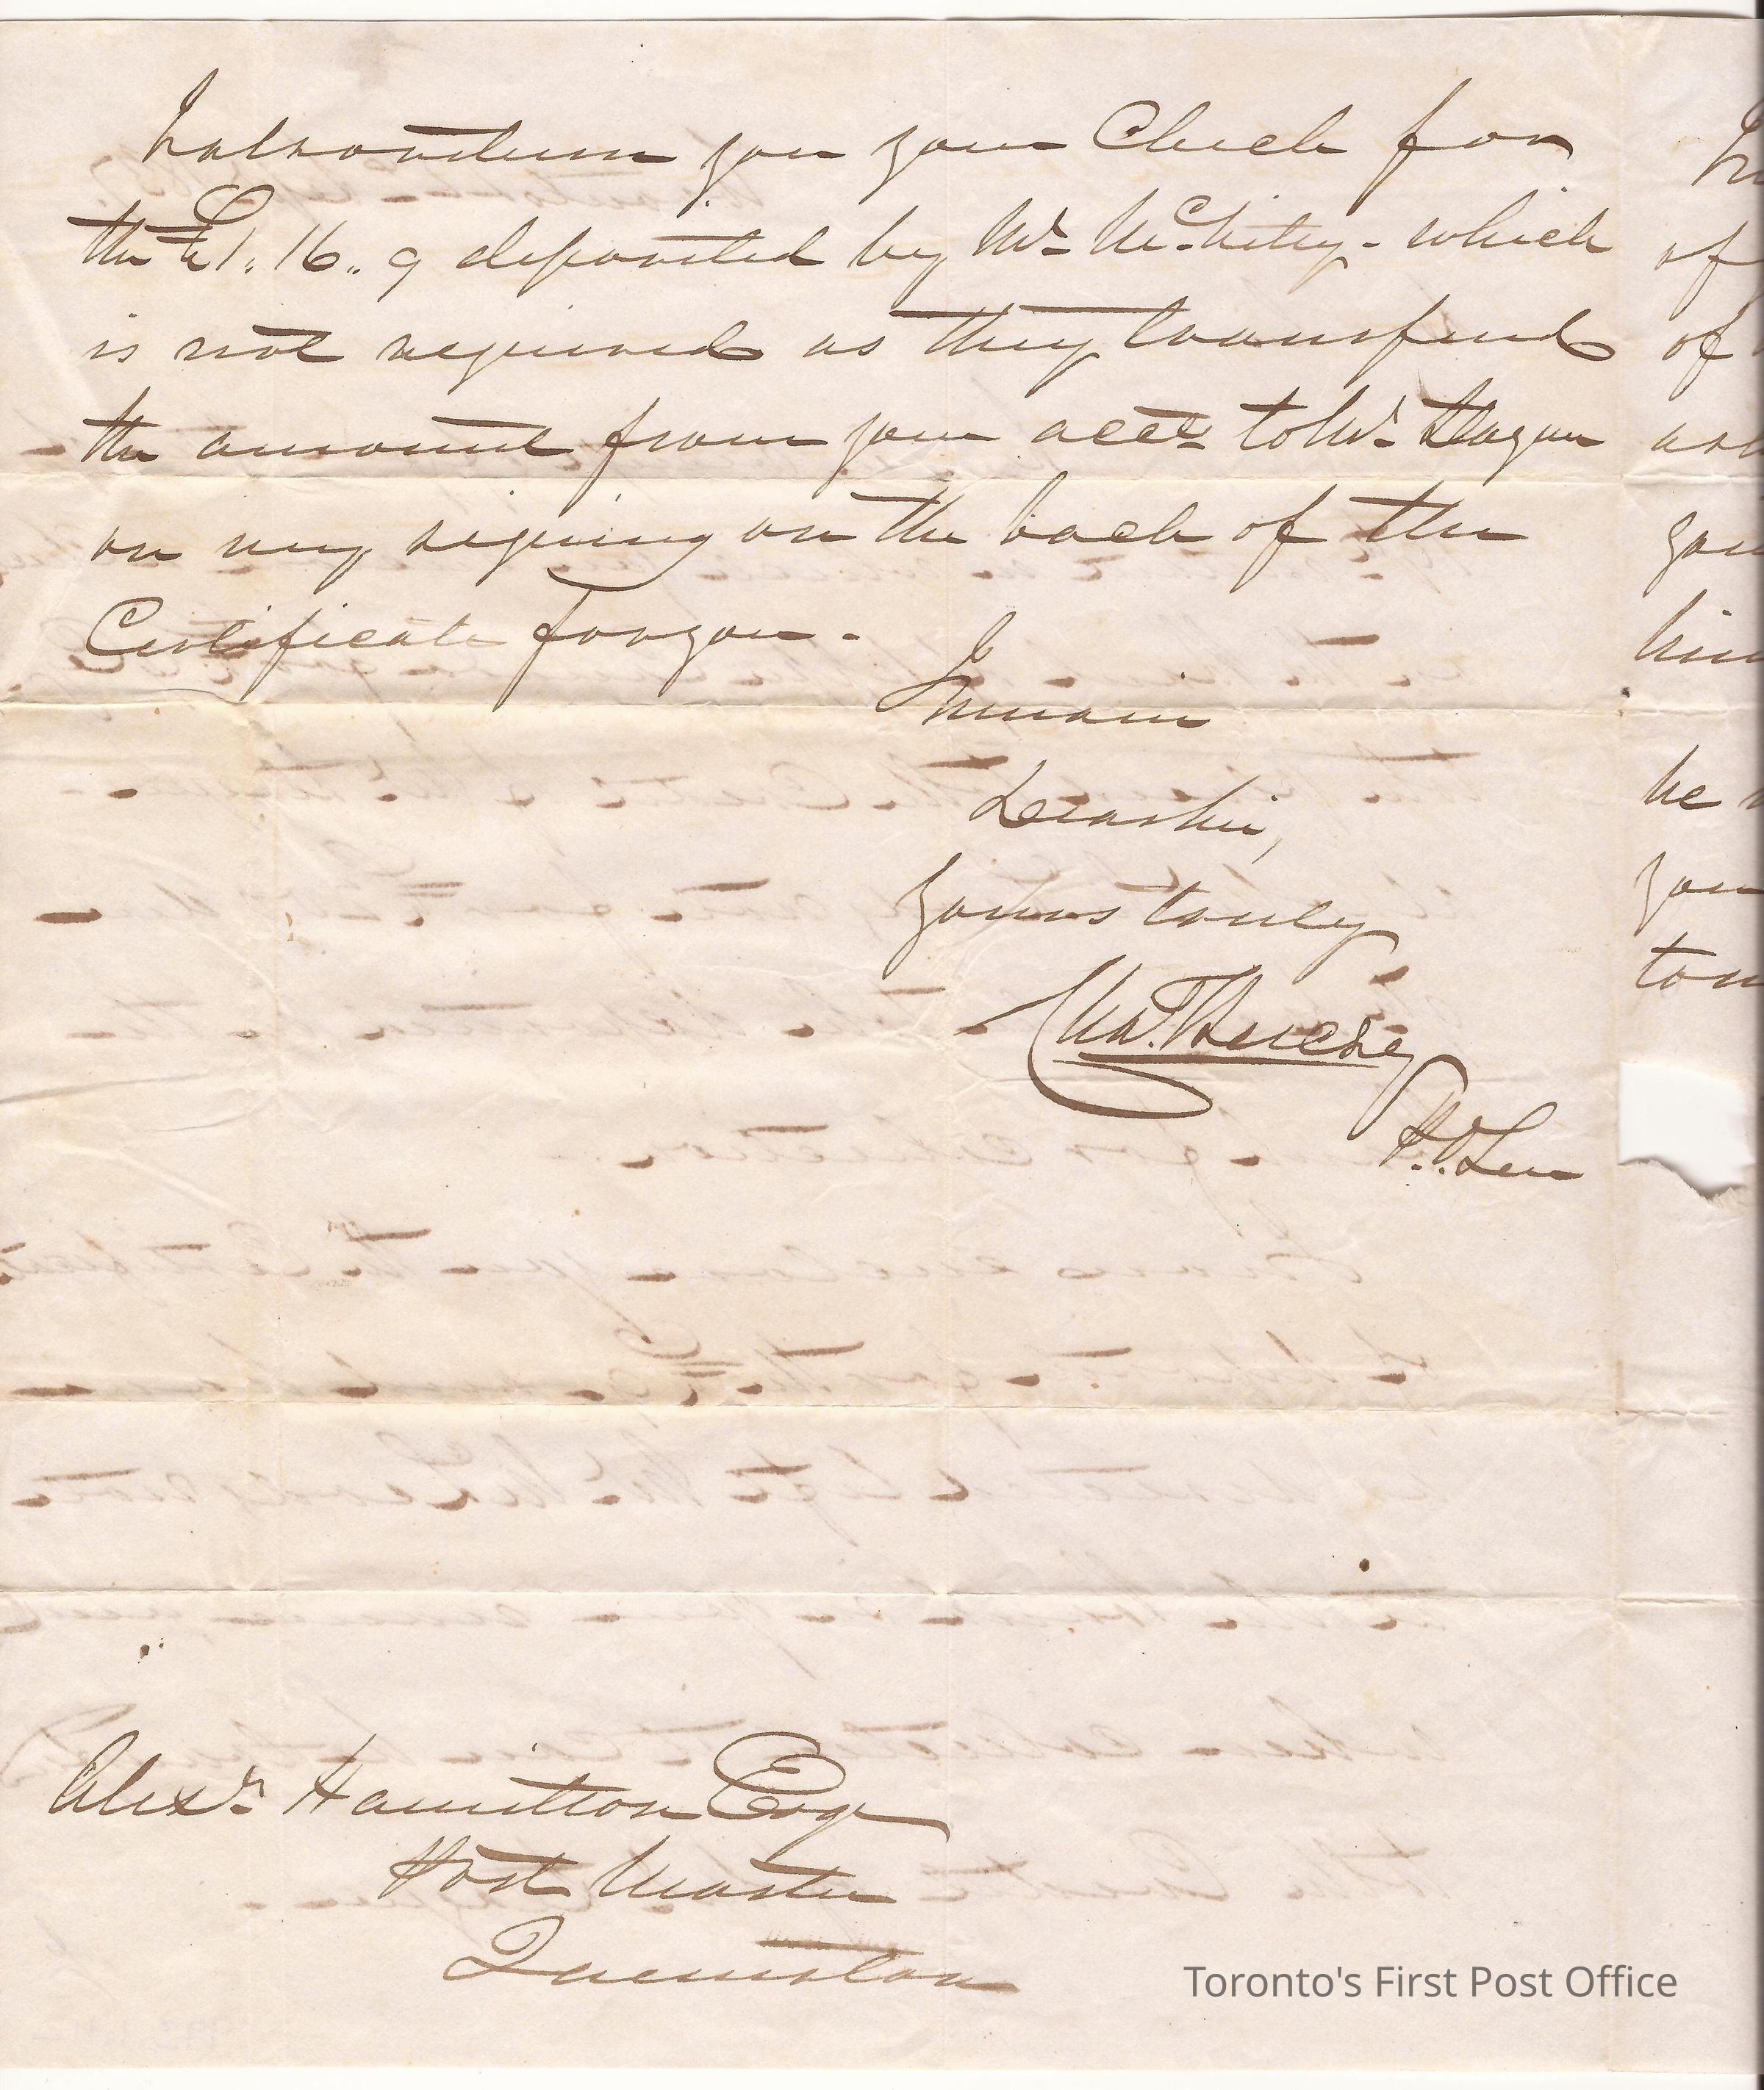 I also return you your Check for
the £1.. 16.. 9 deposited by Mr. which
is not required as they transferred
the amount from your acct. to Mr.
on my signing on the back of the
Certificate for you.
I remain
Dear Sir,
Yours truly
Chas. Berczy
Alexr. Hamilton Esqr
Post Master
Queenston
of
of
you
him
he
you
Toronto's First Post Office